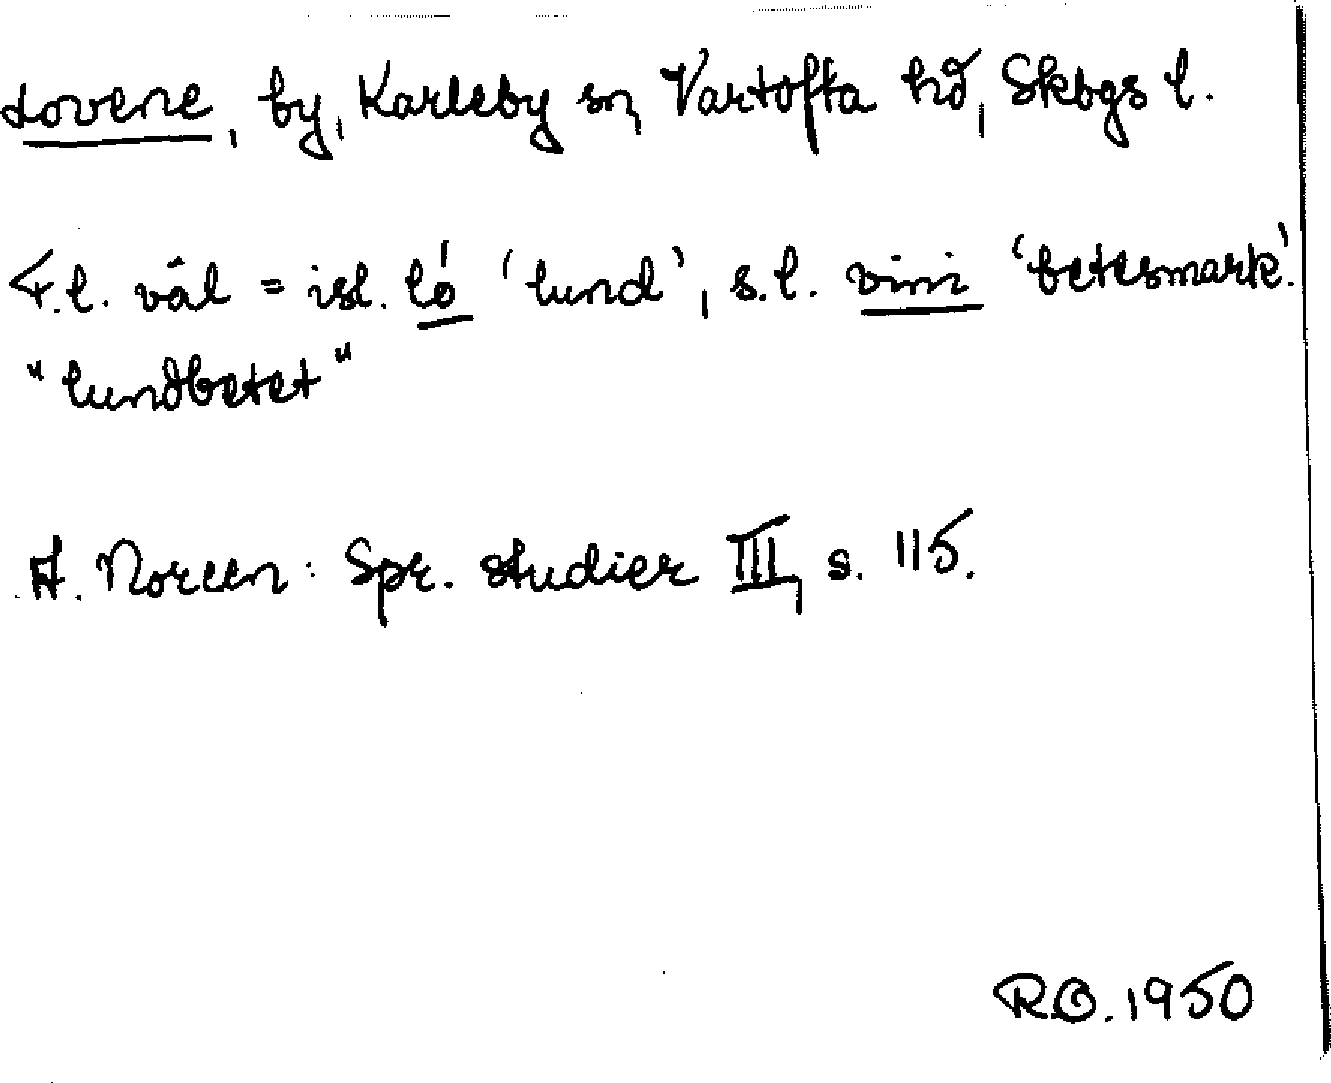 Lovene, by, Karleby sn, Vartofta hd, Skbgs l.
F.l. väl = isl. ló ‘lund’, s.l. vini ‘betesmark’.
"lundbetet"
A. Noreen: Spr. studier III, s. 115.
R.O. 1950